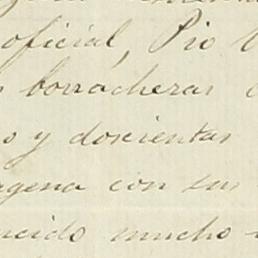 oficial, Pio
borracheras
y doscientas
agena con sus
ncido mucho